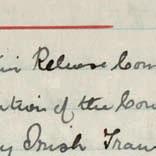 Release Com
ation of the Cou
y Irish Tran